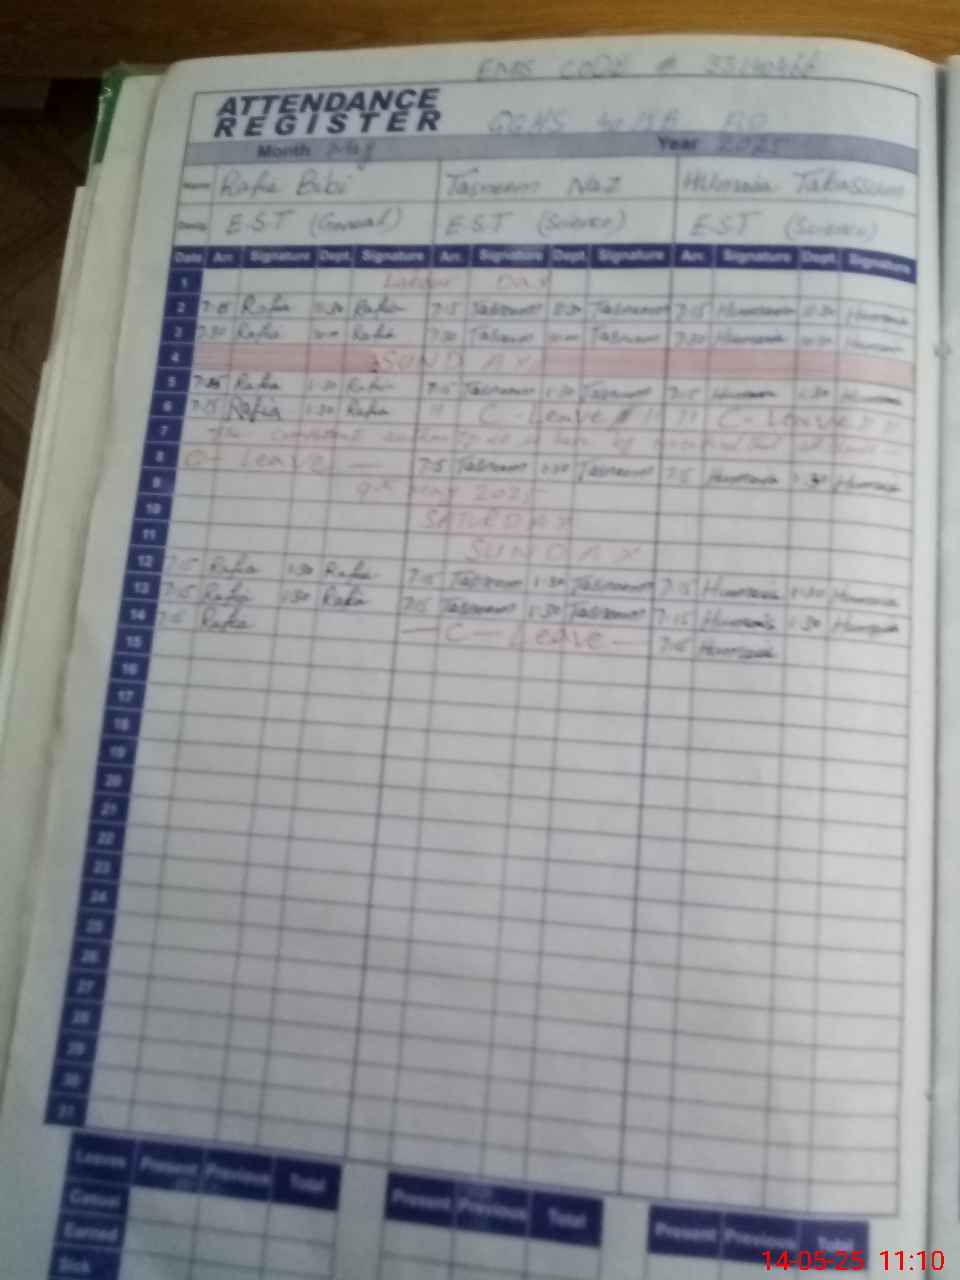 EMIS CODE #
ATTENDANCE
REGISTER
Month May Year 2025
Name Rafia Bibi Tasneem Naz Humaia Tabassum
E.S.T (General) E.S.T (Science) E.S.T (Science)
Date Arr. Signature Dept. Signature Arr. Signature Dept. Signature Arr. Signature Dept. Signature
1 Labour Day
2 7:15 Rafia 11:30 Rafia 7:15 Tasneem 11:30 Tasneem 7:15 Humaia 11:30 Humaia
3 7:30 Rafia Rafia 7:30 Tasneem Tasneem 7:30 Humaia Humaia
4 SUNDAY
5 7:15 Rafia 1:30 Rafia 7:15 Tasneem 1:30 Tasneem 7:15 Humaia 1:30 Humaia
6 7:15 Rafia 1:30 Rafia " C-Leave " " C-Leave "
7 The competent
8 C-Leave — 7:15 Tasneem 1:30 Tasneem 7:15 Humaia 1:30 Humaia
9 9th May 2025
10 SATURDAY
11 SUNDAY
12 7:15 Rafia 1:30 Rafia 7:15 Tasneem 1:30 Tasneem 7:15 Humaia 1:30 Humaia
13 7:15 Rafia 1:30 Rafia 7:15 Tasneem 1:30 Tasneem 7:15 Humaia 1:30 Humaia
14 7:15 Rafia — C — Leave — 7:15 Humaia
15
16
17
18
19
20
21
22
23
24
25
26
27
28
29
30
31
Leaves Present Previous Total Present Previous Total Present Previous Total
Casual
Earned
Sick
14-05-25 11:10